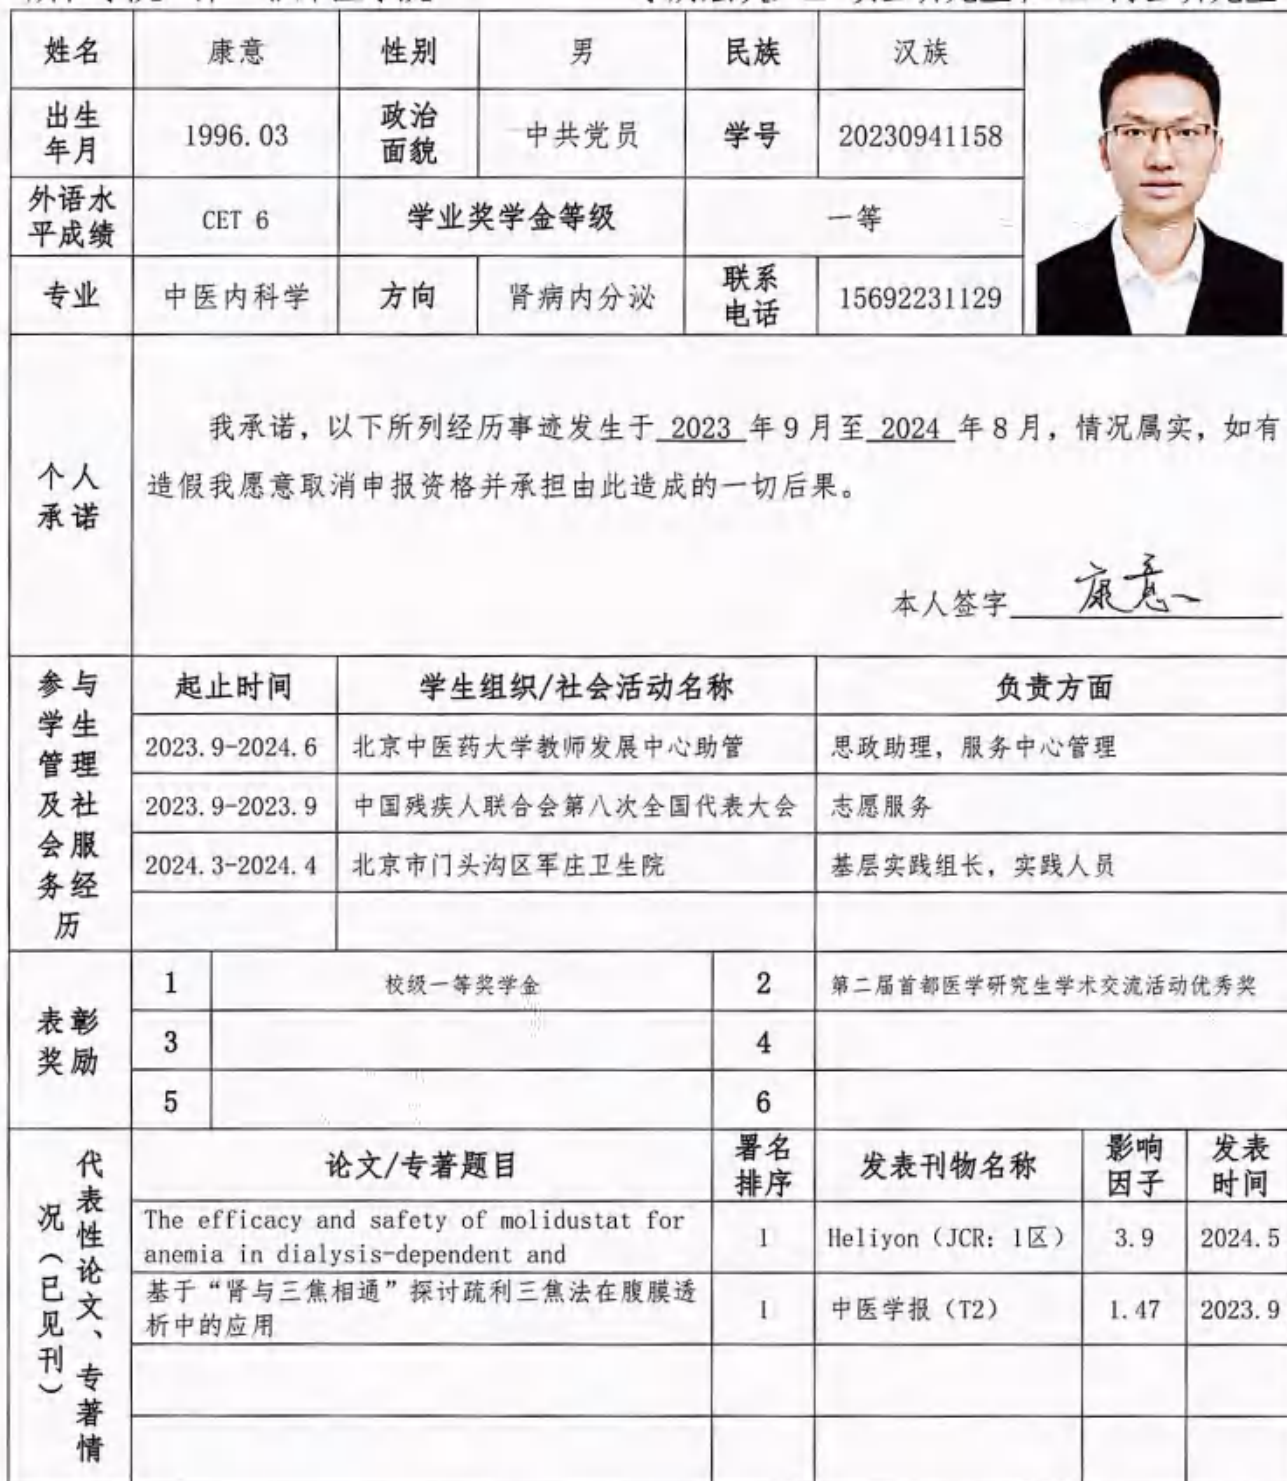 姓名 康意 性别 男 民族 汉族
出生年月 1996.03 政治面貌 中共党员 学号 20230941158
外语水平成绩 CET 6 学业奖学金等级 一等
专业 中医内科学 方向 肾病内分泌 联系电话 15692231129
个人承诺
我承诺，以下所列经历事迹发生于 2023 年9月至 2024 年8月，情况属实，如有
造假我愿意取消申报资格并承担由此造成的一切后果。
本人签字 康意
参与学生管理及社会服务经历
起止时间 学生组织/社会活动名称 负责方面
2023.9-2024.6 北京中医药大学教师发展中心助管 思政助理，服务中心管理
2023.9-2023.9 中国残疾人联合会第八次全国代表大会 志愿服务
2024.3-2024.4 北京市门头沟区军庄卫生院 基层实践组长，实践人员
表彰奖励
1 校级一等奖学金 2 第二届首都医学研究生学术交流活动优秀奖
3 4
5 6
代表性论文、专著情况（已见刊）
论文/专著题目 署名排序 发表刊物名称 影响因子 发表时间
The efficacy and safety of molidustat for
anemia in dialysis-dependent and 1 Heliyon（JCR：1区） 3.9 2024.5
基于“肾与三焦相通”探讨疏利三焦法在腹膜透
析中的应用 1 中医学报（T2） 1.47 2023.9